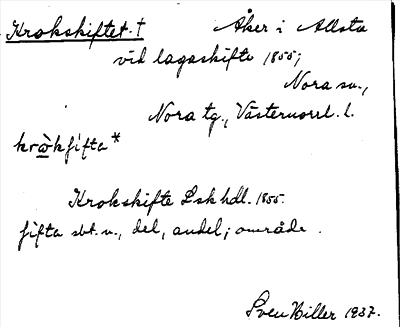 Krokskiftet. † Åker i Allsta
vid lagaskifte 1855;
Nora sn.,
Nora tg., Västernorrl. l.
kròkʃifta*
Krokskifte Lskhdl. 1855.
ʃifta sbt. n., del, andel; område.
Sven Biller 1937.